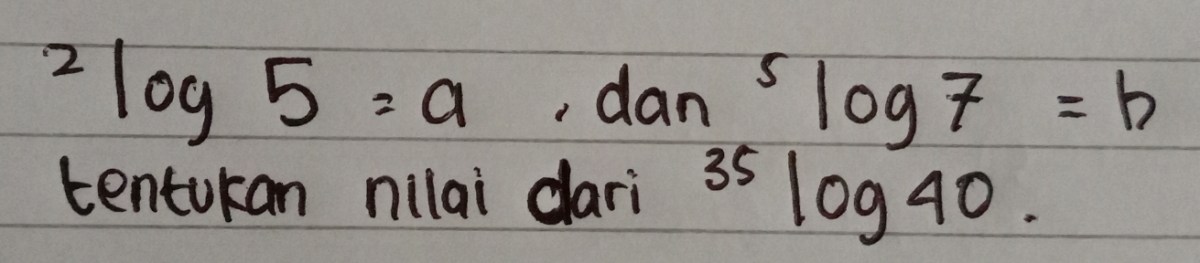 ²log 5 = a , dan ⁵log 7 = b
tentukan nilai dari ³⁵log 40.